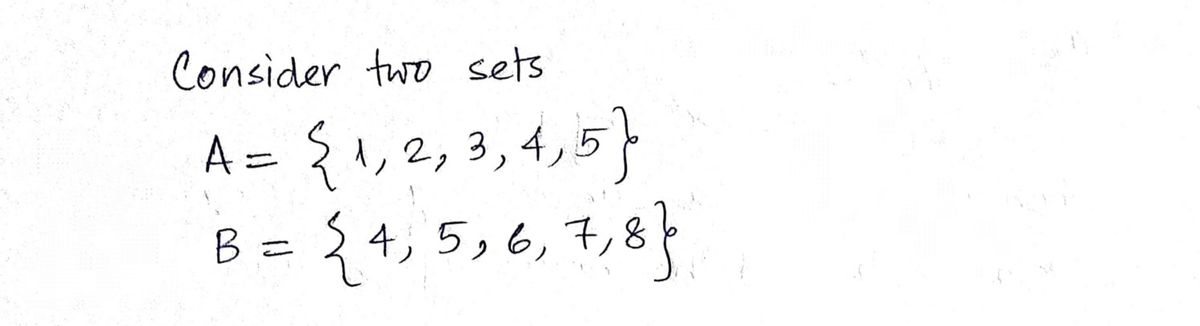 Consider two sets
A = {1, 2, 3, 4, 5}
B = {4, 5, 6, 7, 8}